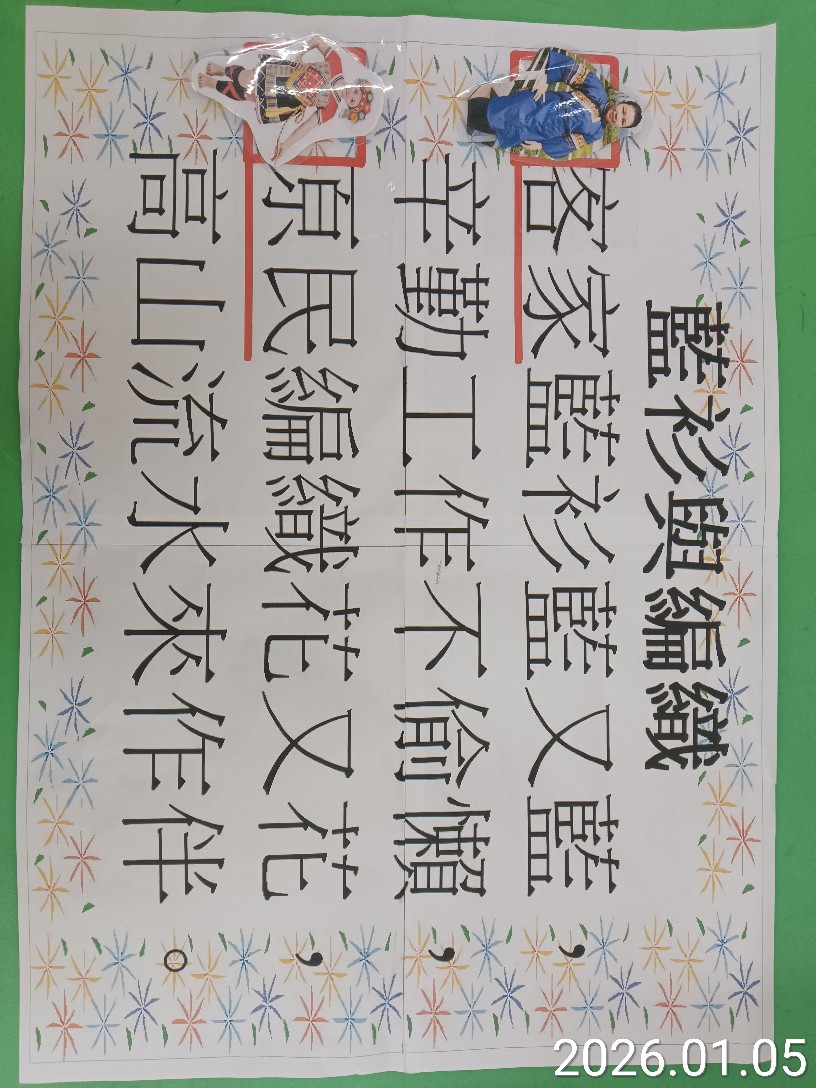 藍衫與編織
客家藍衫藍又藍，
辛勤工作不偷懶，
原民編織花又花，
高山流水來作伴。
2026.01.05